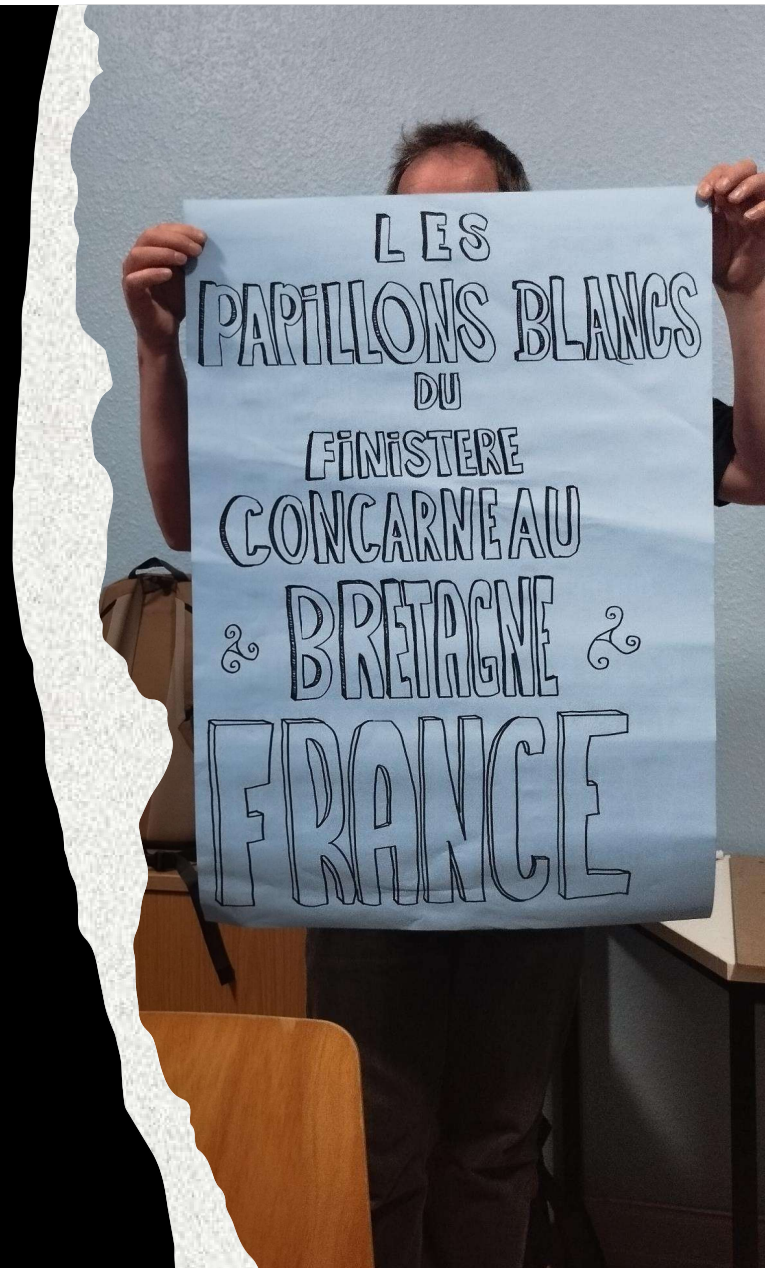 LES
PAPiLLONS BLANCS
DU
FiNiSTERE
CONCARNEAU
BRETAGNE
FRANCE